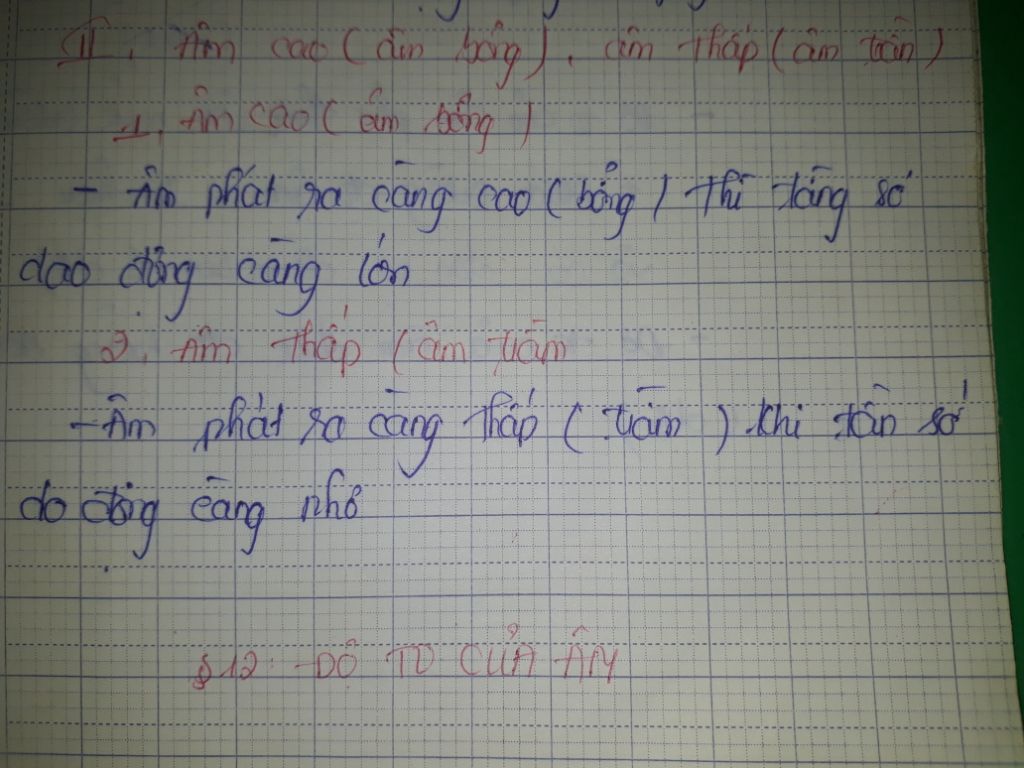 II. Âm cao (âm bổng), âm thấp (âm trần)
1. Âm cao (âm bổng)
- Âm phát ra càng cao (bổng) thì tầng số
dao động càng lớn
2. Âm thấp (âm trầm
- Âm phát ra càng thấp (trầm) khi tần số
do động càng nhỏ
§ 12: ĐỘ TO CỦA ÂM